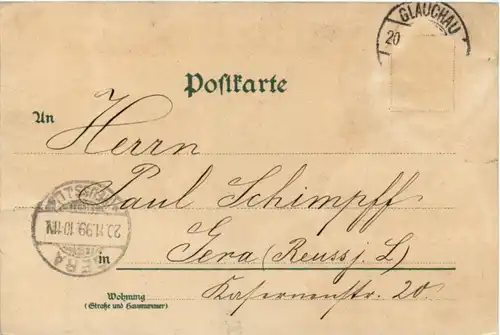 GLAUCHAU
20
Postkarte
An
Herrn
Paul Schimpff
in Gera (Reuss j. L.)
Wohnung
(Straße und Hausnummer)
Kasernenstr. 20.
GERA
20.11.99.10-11N.